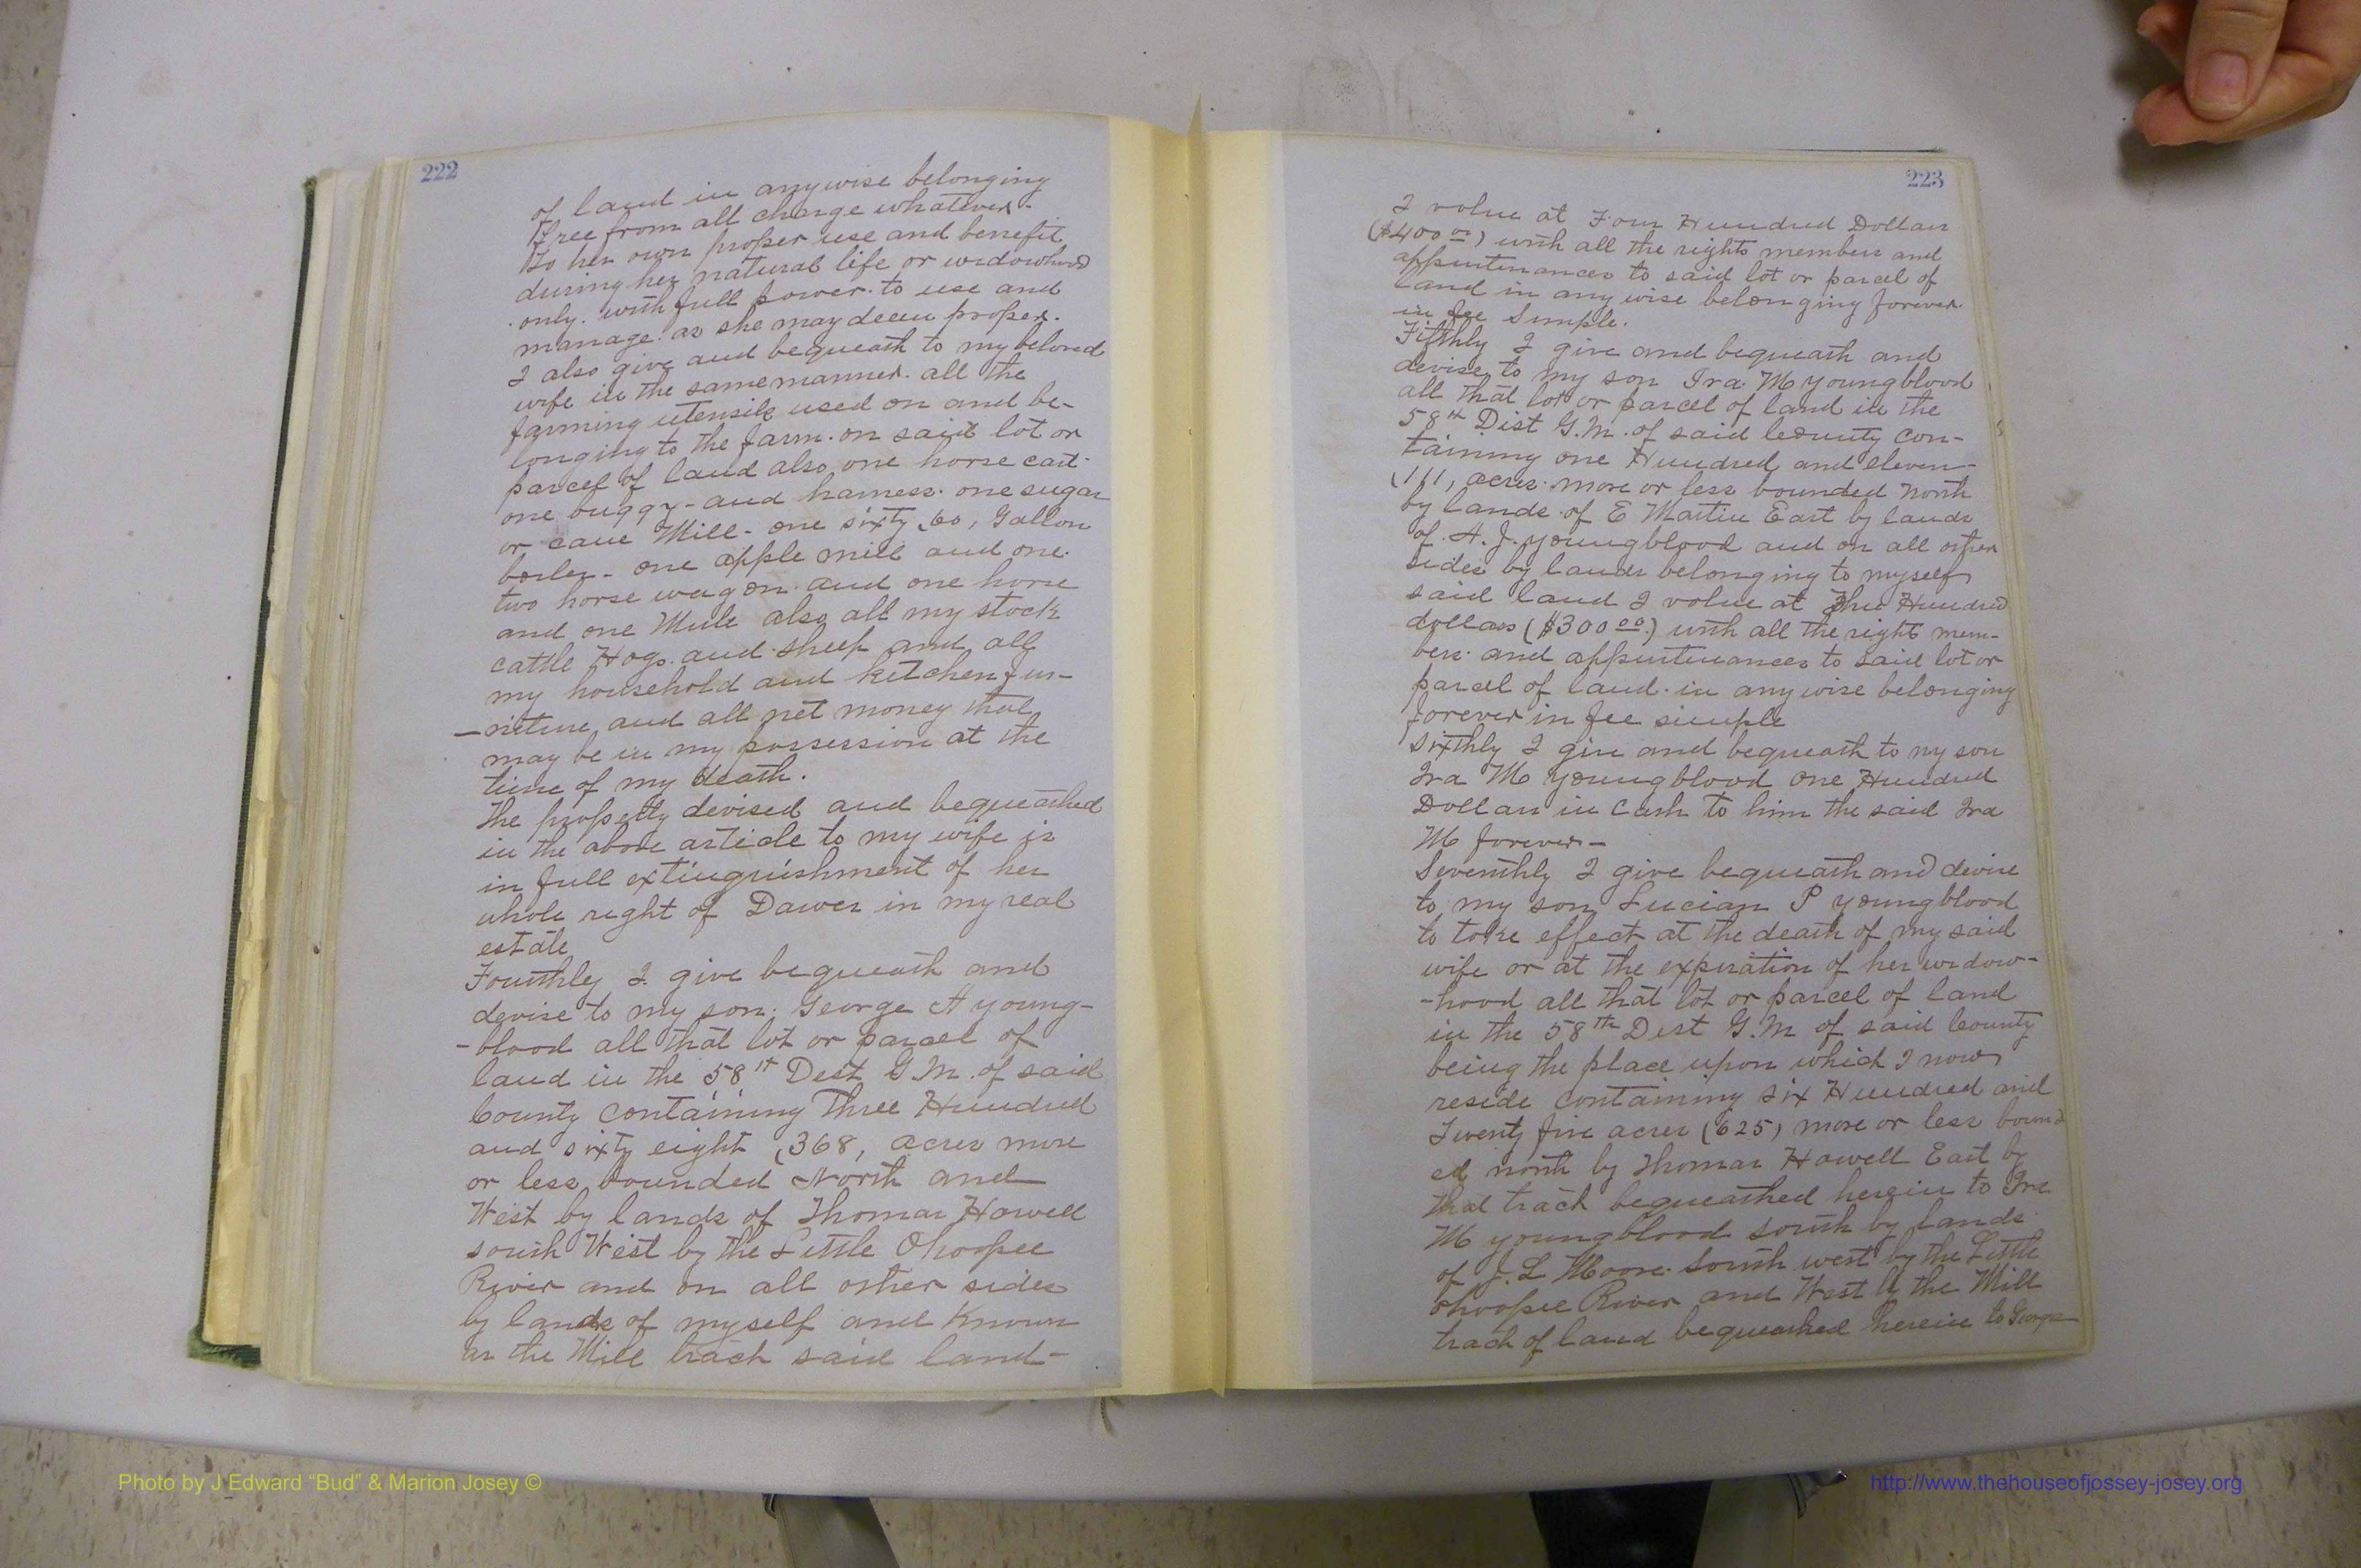 222
of land in anywise belonging
Free from all charge whatever.
To her own proper use and benefit
during her natural life or widowhood
only. with full power. to use and
manage. as she may deem proper.
I also give and bequeath to my beloved
wife in the same manner. all the
farming utensils used on and be-
longing to the farm. on said lot or
parcel of land also one horse cart
one buggy - and harness. one sugar
or cane Mill - one sixty (60, Gallon
boiler - one apple mill and one
two horse wagon. and one horse
and one Mule also all my stock
cattle Hogs. and sheep and all
my household and kitchen fur-
-niture and all net money that
may be in my possession at the
time of my death.
The property devised and bequeathed
in the above article to my wife is
in full extinguishment of her
whole right of Dower in my real
estate
Fourthly I give bequeath and
devise to my son. George A young-
-blood all that lot or parcel of
land in the 58th Dist G.M. of said
County containing Three Hundred
and sixty eight (368, acres more
or less bounded North and
West by lands of Thomas Howell
south West by the Little Ohoopee
River and on all other sides
by lands of myself and Known
as the Mill track said land -
223
I value at Four Hundred Dollars
($400 00) with all the rights members and
appurtenances to said lot or parcel of
land in any wise belonging forever
in fee Simple.
Fifthly I give and bequeath and
devise to my son Ira M youngblood
all that lot or parcel of land in the
58th Dist G.M. of said County con-
taining one Hundred and eleven -
(111, acres. more or less bounded North
by lands of E Martin East by lands
of A. J. youngblood and on all other
sides by lands belonging to myself
said land I value at Three Hundred
dollars ($300 00) with all the right mem-
bers. and appurtenances to said lot or
parcel of land. in any wise belonging
forever in fee simple
Sixthly I give and bequeath to my son
Ira M youngblood One Hundred
Dollars in Cash to him the said Ira
M forever -
Seventhly I give bequeath and devise
to my son Lucian P youngblood
to take effect at the death of my said
wife or at the expiration of her widow-
-hood all that lot or parcel of land
in the 58th Dist G.M of said County
being the place upon which I now
reside containing six Hundred and
Twenty five acres (625) more or less bound
ed north by Thomas Howell East by
that track bequeathed herein to Ira
M youngblood south by lands
of J. L Moore. South west by the Little
Ohoopee River and West by the Mill
track of land bequeathed herein to George
Photo by J Edward “Bud” & Marion Josey ©
http://www.thehouseofjossey-josey.org